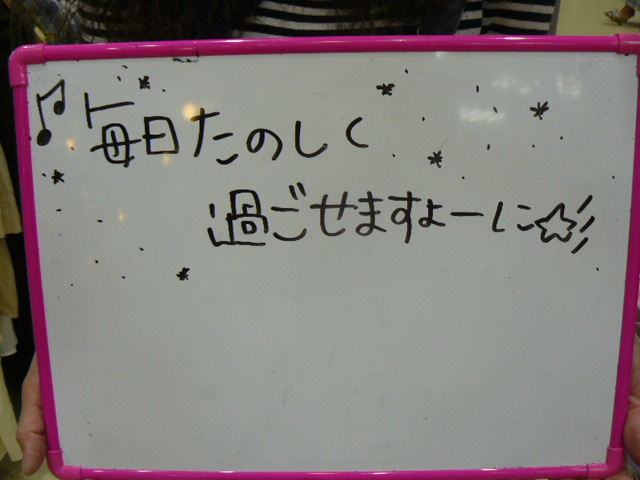 ♪毎日たのしく
過ごせますよーに☆